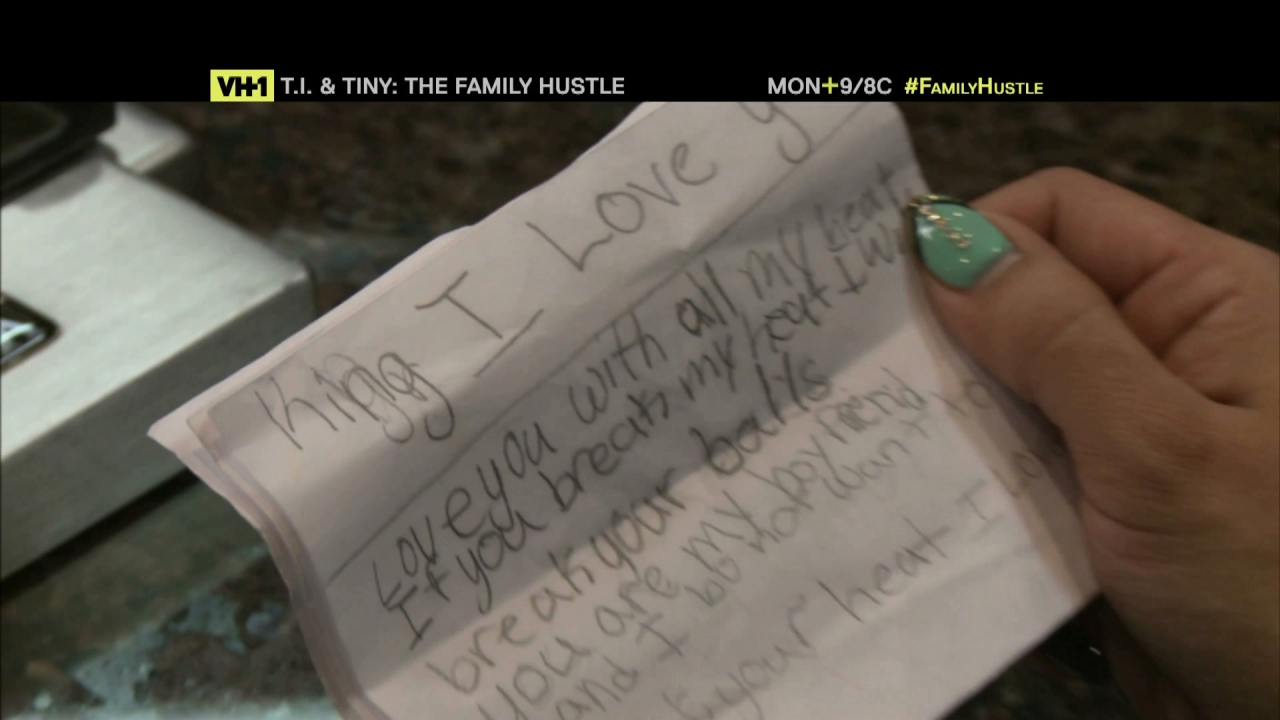 VH1 T.I. & TINY: THE FAMILY HUSTLE
MON+9/8C #FAMILYHUSTLE
King I Love y
Love you with all my heat
If you break my heat I wi
break your balls
you are my boyfriend
and I do not want
your heat I